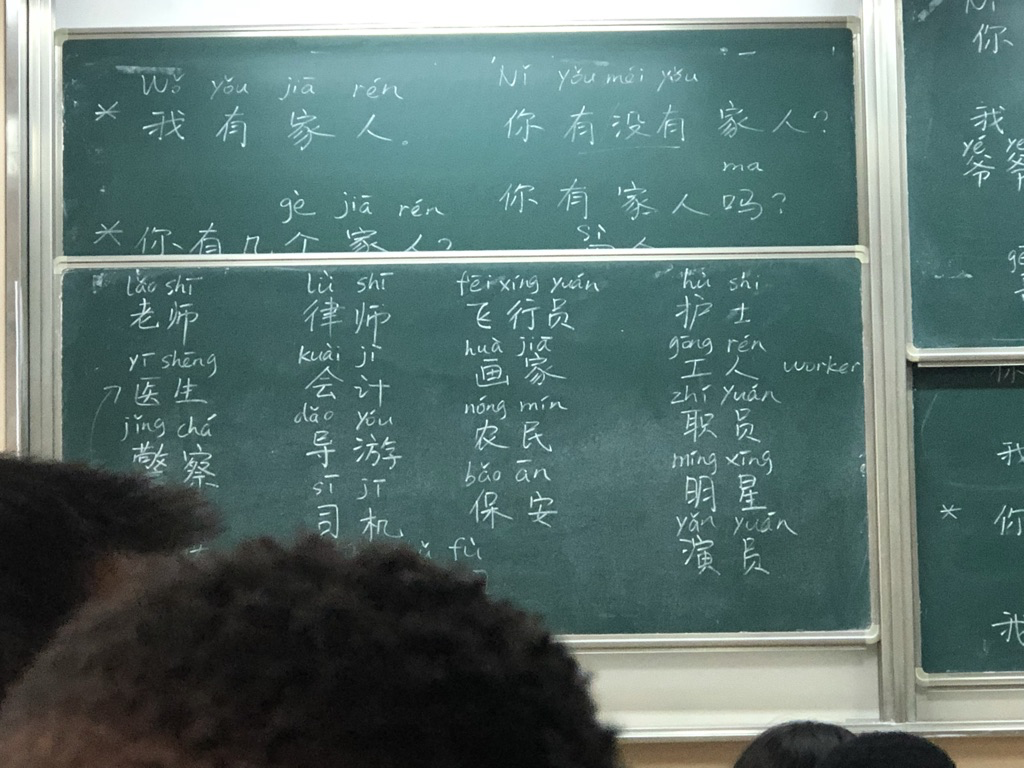 Wǒ yǒu jiā rén
* 我有家人。
Nǐ yǒu méi yǒu
你有没有家人?
ma
你有家人吗?
gè jiā rén
* 你有几个家人?
sì
lǎo shī
老师
yī shēng
医生
jǐng chá
警察
lǜ shī
律师
kuài jì
会计
dǎo yóu
导游
sī jī
司机
fù
fēi xíng yuán
飞行员
huà jiā
画家
nóng mín
农民
bǎo ān
保安
hù shi
护士
gōng rén
工人 worker
zhí yuán
职员
míng xīng
明星
yǎn yuán
演员
Nǐ
你
我
yé yé
爷爷
我
* 你
我